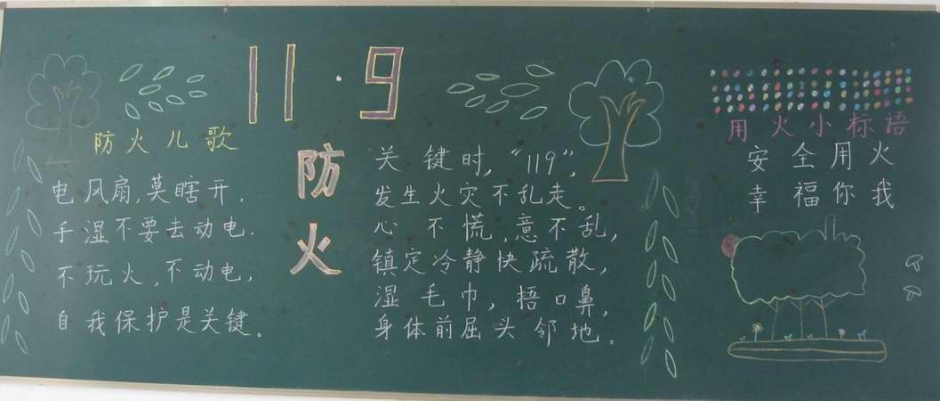 11·9
防火
防火儿歌
电风扇,莫瞎开,
手湿不要去动电.
不玩火,不动电,
自我保护是关键。
关键时,“119”,
发生火灾不乱走。
心不慌,意不乱,
镇定冷静快疏散,
湿毛巾,捂口鼻,
身体前屈头邻地.
用火小标语
安全用火
幸福你我